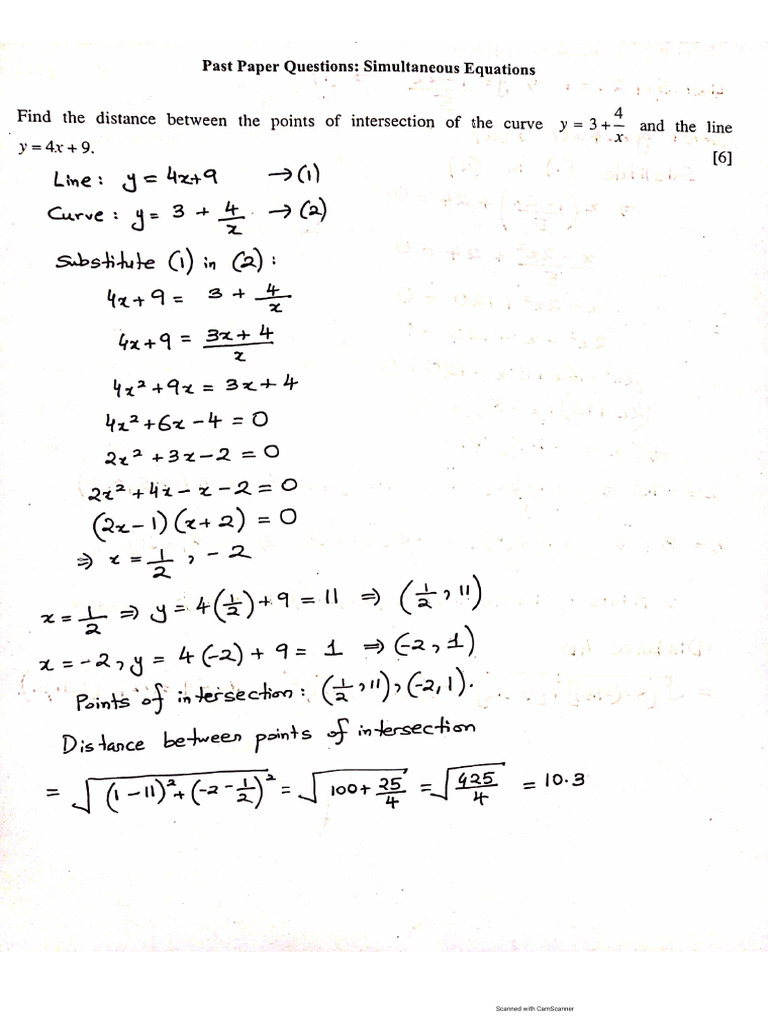 Past Paper Questions: Simultaneous Equations
Find the distance between the points of intersection of the curve y = 3 + 4/x and the line
y = 4x + 9.
[6]
Line: y = 4x+9 → (1)
Curve: y = 3 + 4/x → (2)
Substitute (1) in (2):
4x+9 = 3 + 4/x
4x+9 = (3x+4)/x
4x² + 9x = 3x + 4
4x² + 6x - 4 = 0
2x² + 3x - 2 = 0
2x² + 4x - x - 2 = 0
(2x-1)(x+2) = 0
⇒ x = 1/2, -2
x = 1/2 ⇒ y = 4(1/2) + 9 = 11 ⇒ (1/2, 11)
x = -2, y = 4(-2) + 9 = 1 ⇒ (-2, 1)
Points of intersection: (1/2, 11), (-2, 1).
Distance between points of intersection
= √((1-11)² + (-2-1/2)²) = √(100 + 25/4) = √(425/4) = 10.3
Scanned with CamScanner